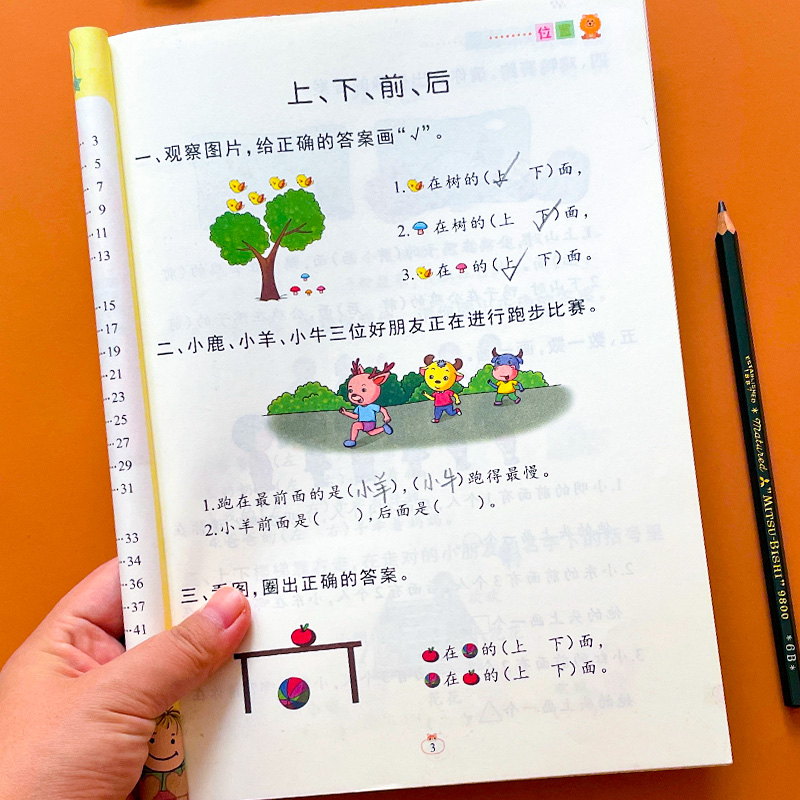 位置
上、下、前、后
一、观察图片,给正确的答案画“√”。
1. 在树的(上 下)面,
2. 在树的(上 下)面,
3. 在 的(上 下)面。
二、小鹿、小羊、小牛三位好朋友正在进行跑步比赛。
1.跑在最前面的是(小羊),(小牛)跑得最慢。
2.小羊前面是( ),后面是( )。
三、看图,圈出正确的答案。
在 的(上 下)面,
在 的(上 下)面。
3
3
5
7
9
11
13
15
17
19
21
23
25
27
29
31
33
34
36
37
41
ESTABLISHED 1887 * Matured * "MITSU-BISHI" 9800 *6B*